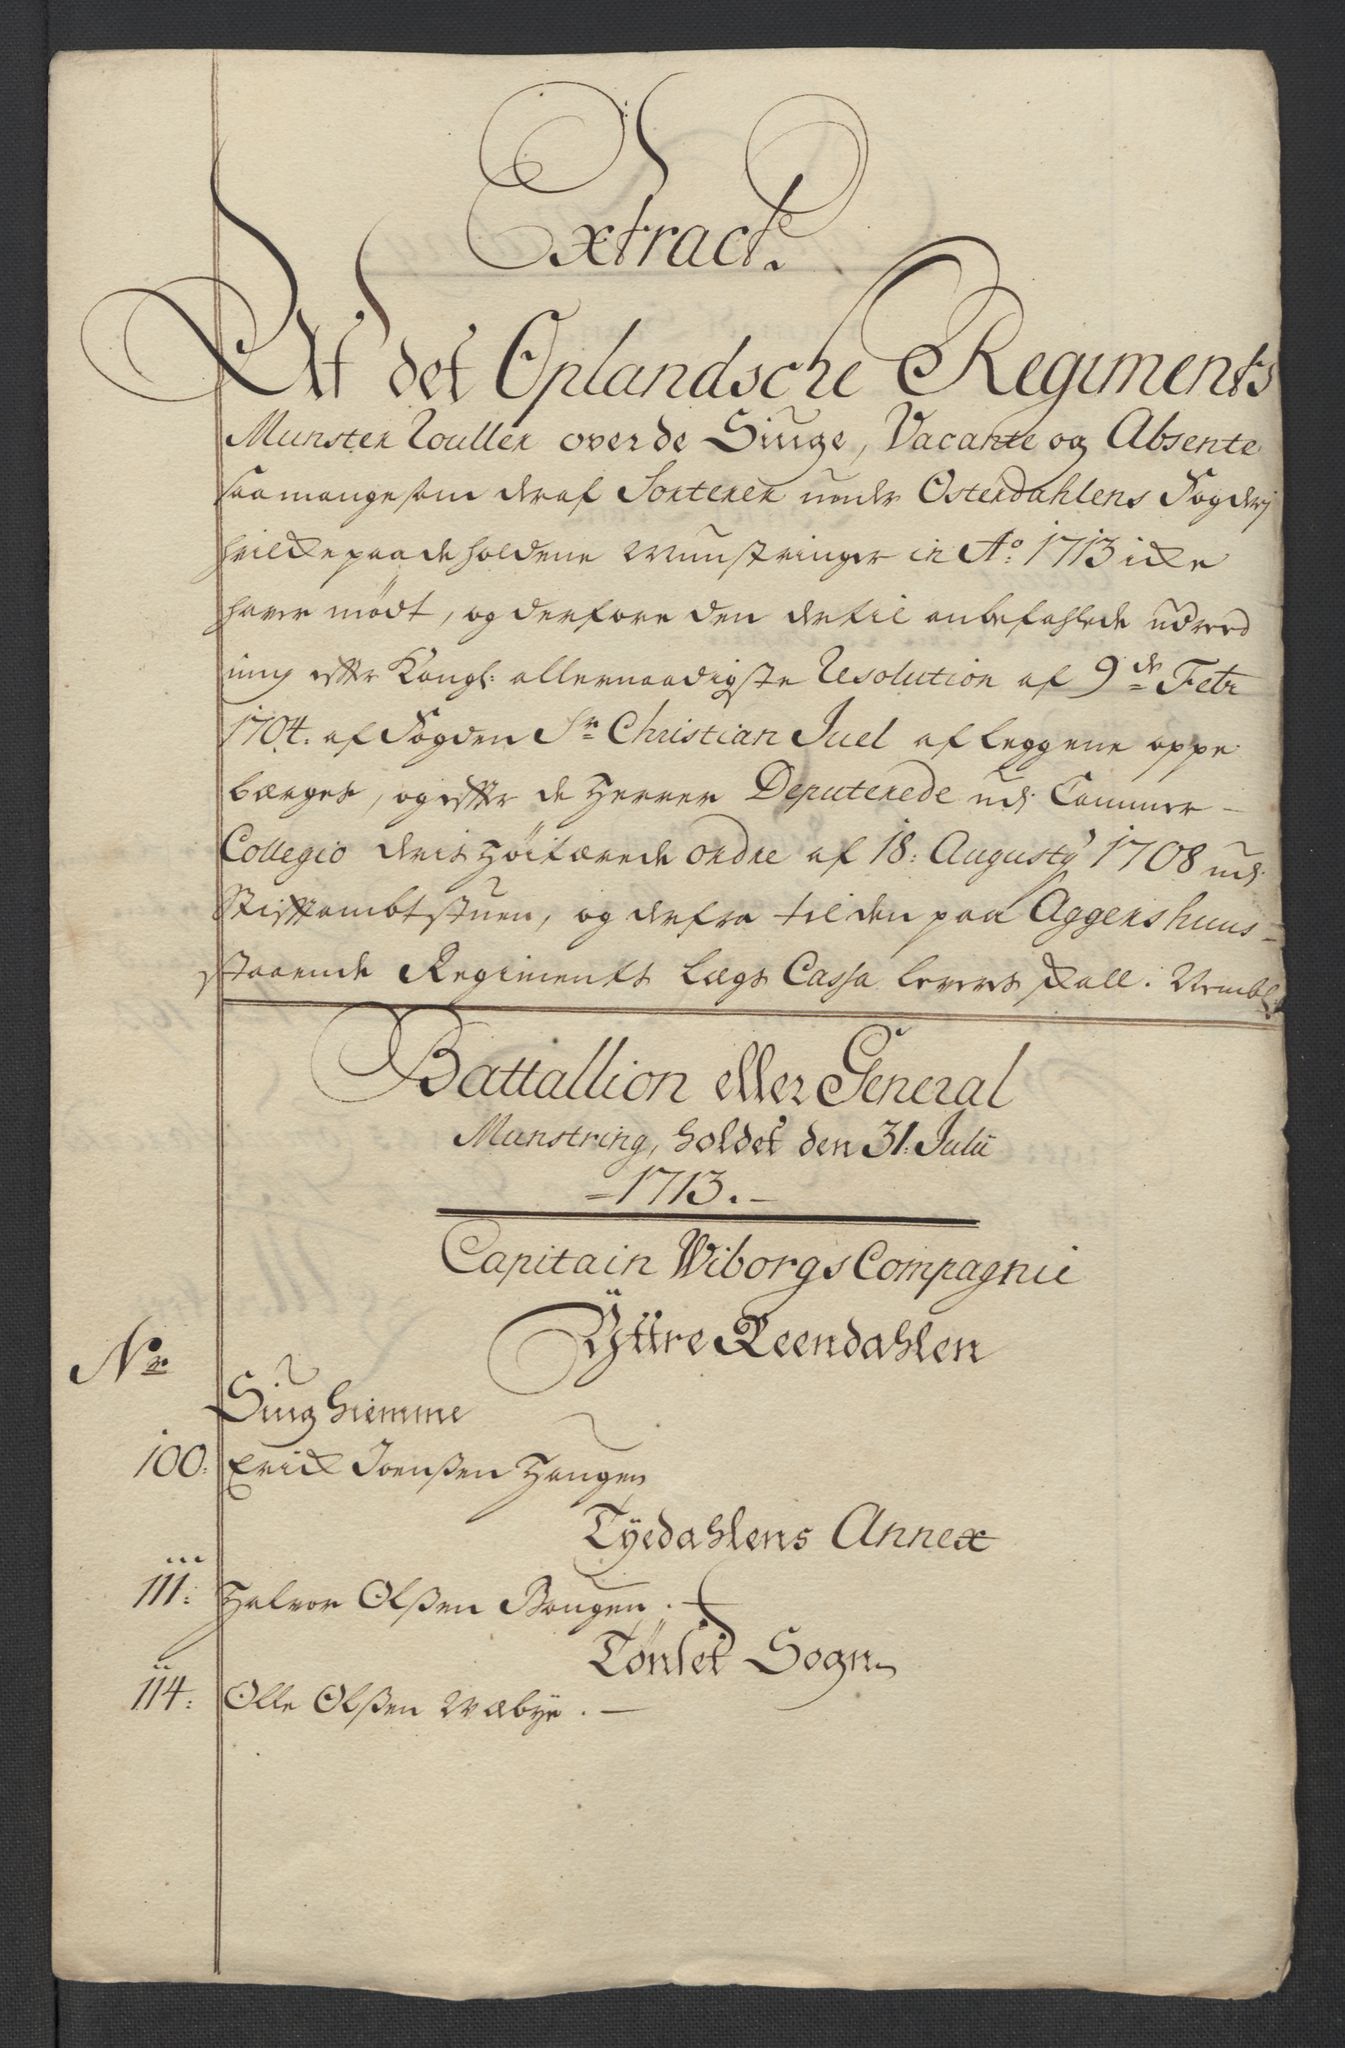 Extract.
Af det Oplandsche Regiments
Munster Roller over de Siuge, Vacante og Absente
saa mange som deraf Sorterer under Osterdahlens Fogderj
hvilke paa de holdene Munstringer in Ao: 1713 icke
haver mødt, og derfore den dertil anbefahlede udreed
ning efter Kongl: allernaadigste Resolution af 9de Febr
1704. af Fogden Sr Christian Juel af leggene oppe
bærges, og efter de Herrer Deputerede udj Cammer-
Collegio deris Høitærede ordre af 18: Augustij 1708 udj
Stiftambtstuen, og derfra til den paa Aggershuus-
staaende Regiments Lægs Cassa leveres skall. Nembl:
Battallion eller General
Munstring, holdet den 31. Julii
-1713.-
Capitain Wiborgs Compagnie
Yttre Reendahlen
No
Siug hiemme
100: Erick Joenßen Haugen
Tyedahlens Annex
111: Halvor Olßen Bougen.
Tønset Sogn
114: Olle Olßen Wæbye.